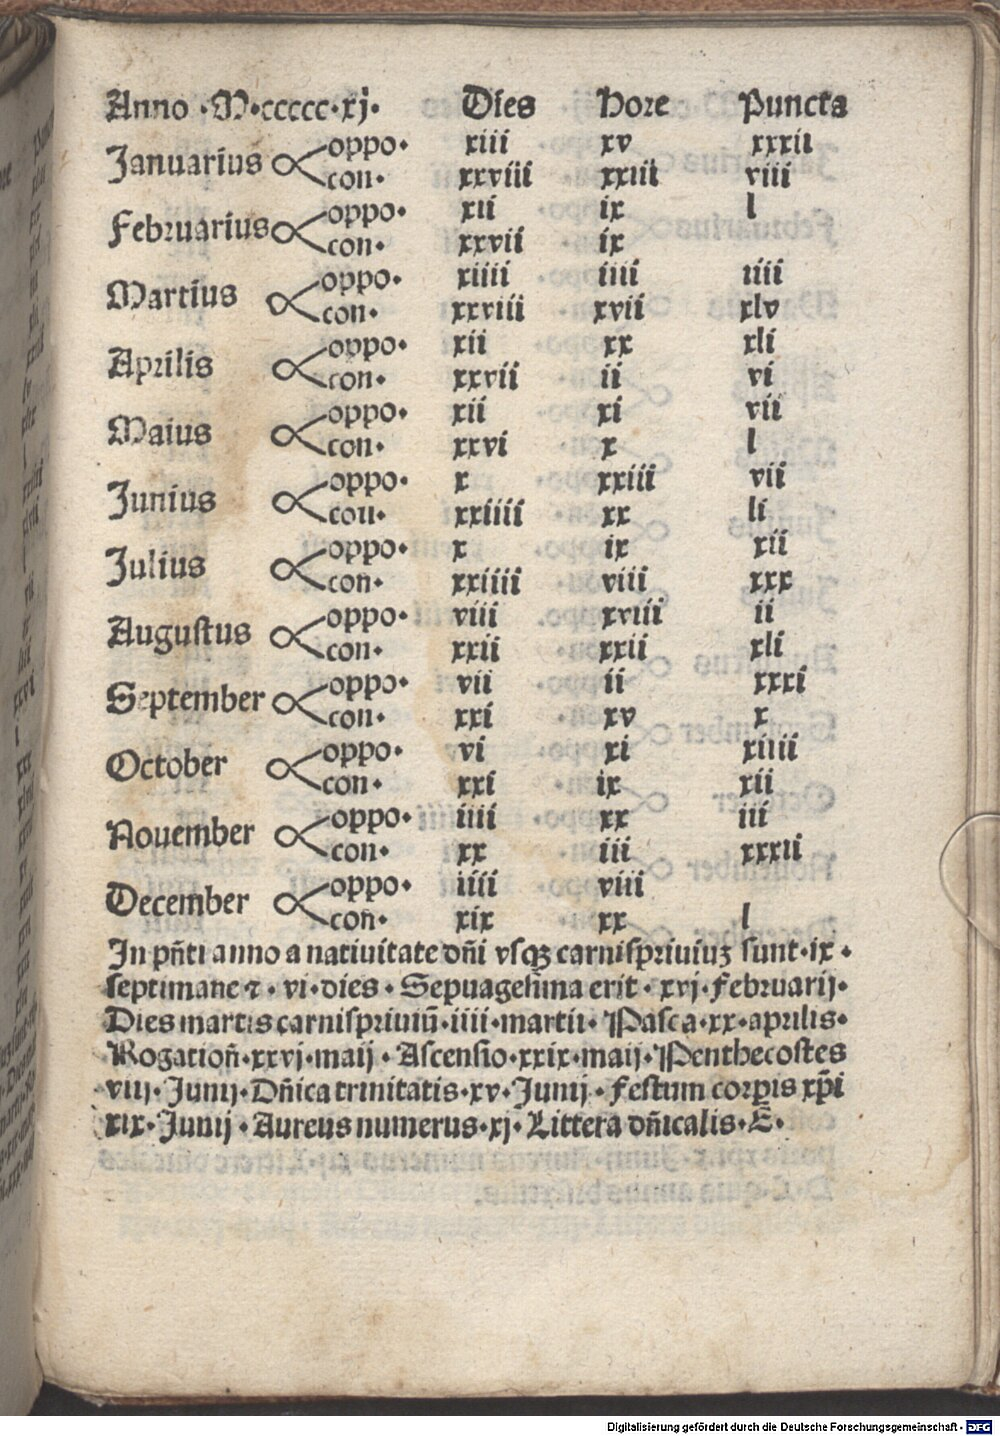 Anno ·M·ccccc·xj· Dies Hore Puncta
Januarius oppo· xiii xv xxxii
con· xxviii xxiii viii
Februarius oppo· xii ix l
con· xxvii ix
Martius oppo· xiiii iiii iiii
con· xxviii xvii xlv
Aprilis oppo· xii xx xli
con· xxvii ii vi
Maius oppo· xii xi vii
con· xxvi x l
Junius oppo· x xxiii vii
con· xxiiii xx li
Julius oppo· x ix xii
con· xxiiii viii xxx
Augustus oppo· viii xviii ii
con· xxii xxii xli
September oppo· vii ii xxxi
con· xxi xv x
October oppo· vi xi xiiii
con· xxi ix xii
Nouember oppo· iiii xx iii
con· xx iii xxxii
December oppo· iiii viii
con̄· xix xx l
In pn̄ti anno a natiuitate dn̄i vsqꝫ carnispriuiuꝫ sunt·ix·
septimane ⁊ · vi·dies · Septuagesīma erit · xvj·februarij·
Dies martis carnispriuiū·iiii·martii· Pasca·xx·aprilis·
Rogation̄·xxvj·maij · Ascensio·xxix·maij·Penthecostes
viij·Junij·Dn̄ica trinitatis·xv·Junij · Festum corꝑis xp̄i
xix·Junij · Aureus numerus·xj·Littera dn̄icalis·E·
Digitalisierung gefördert durch die Deutsche Forschungsgemeinschaft - DFG